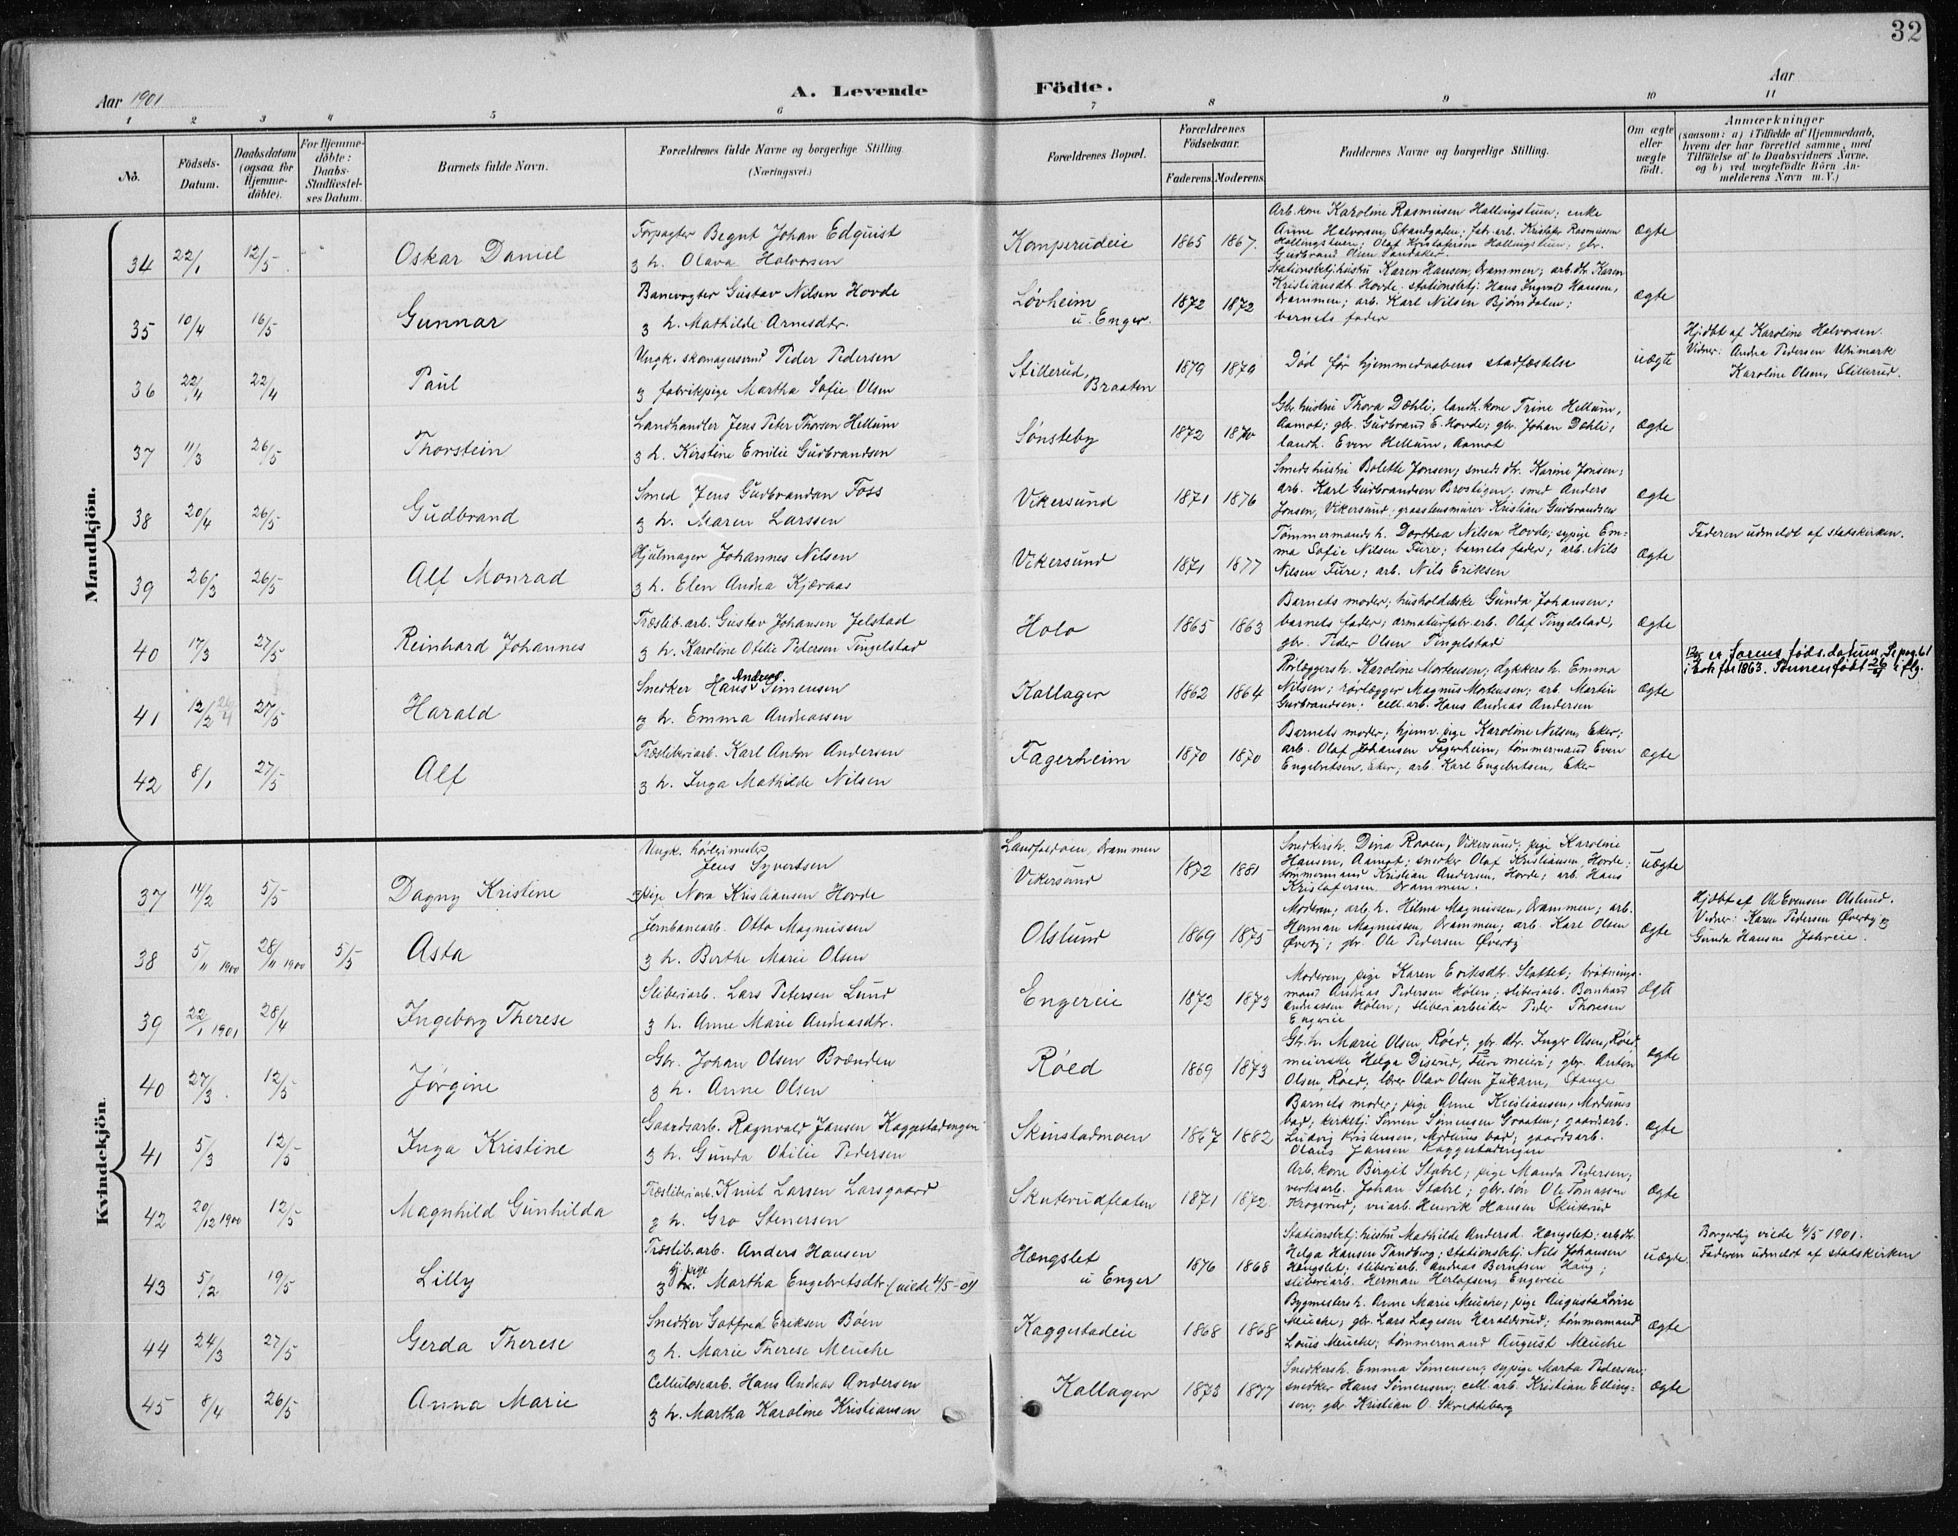 32
Aar 1901
A. Levende Födte.
Aar
1 2 3 4 5 6 7 8 9 10 11
No.
Födsels-Datum.
Daabsdatum (ogsaa for Hjemmedöbte).
For Hjemmedöbte: Daabs-Stadfæstelses Datum.
Barnets fulde Navn.
Forældrenes fulde Navne og borgerlige Stilling. (Næringsvei.)
Forældrenes Bopæl.
Forældrenes Födselsaar.
Faderens. Moderens.
Faddernes Navne og borgerlige Stilling.
Om ægte eller uægte födt.
Anmærkninger
(saasom: a) i Tilfælde af Hjemmedaab, hvem der har forrettet samme, med Tilföielse af to Daabsvidners Navne, og b) ved uægtefödte Börn Anmelderens Navn m. V.)
Mandkjön.
34 22/1 12/5 Oskar Daniel
Forpagter Begnt Johan Edquist
3 h. Olava Halvorsen
Komperudeie 1865 1867.
Arb. kone Karoline Rasmusen Hallingstuen; enke
Anne Halvorsen, Skandgaden; fabr. arb. Kristofer Rasmussen
Hallingstuen; Olaf Kristofersen Hallingstuen; gbr.
Gudbrand Olsen Sandaker.
ægte
35 10/4 16/5 Gunnar
Banevogter Gustav Nilsen Hovde
3 h. Mathilde Arnesdtr.
Løvheim u. Enger. 1872 1872
Stationsbetj. hustru Karen Hansen, Drammen; arb. dtr. Karen
Kristiansdt. Hovde. stationsbetj. Hans Ingvald Hansen,
Drammen; arb. Karl Nilsen Bjørndalen;
barnets fader
ægte
36 22/4 22/4 Paul
Ungk. skomagersvend Peder Pedersen
3 fabrikpige Martha Sofie Olsen
Stillerud, Braaten 1879 1879
Død før hjemmedaabens stadfæstelse
uægte
Hj.dbt af Karoline Halvorsen.
Vidner: Andra Pedersen Uhimark
Karoline Olsen, Stillerud.
37 11/3 26/5 Thorstein
Landhandler Jens Peter Thorsen Hellum
3 h. Kirstine Emilie Gudbrandsen
Sønsteby 1872 1870
Gbr. hustru Thora Dæhli, landh. kone Trine Hellum,
Aamot; gbr. Gudbrand E. Hovde; gbr. Johan Dæhli;
landh. Even Hellum, Aamot
ægte
38 20/4 26/5 Gudbrand
Smed Jens Gudbrandsn Foss
3 h. Maren Larssen
Vikersund 1871 1876
Smeds hustru Bolette Jonsen, smeds dtr. Karine Jonsen;
arb. Karl Gudbrandsen Brostigen; smed Anders
Jonsen, Vikersund; graastensmurer Kristian Gudbrandsen
ægte
39 26/3 26/5 Alf Monrad
Hjulmager Johannes Nilsen
3 h. Elen Andra Kjøvaas
Vikersund 1871 1877
Tømmermands h. Dorthea Nilsen Hovde; sypige Em-
ma Sofie Nilsen Fure; barnets fader; arb. Nils
Nilsen Fure; arb. Nils Eriksen
ægte
Faderen udmeldt af statskirken.
40 17/3 27/5 Reinhard Johannes
Træslib. arb. Gustav Johansen Jelstad
3 h. Karoline Otilie Pedersen Tingelstad
Holo 1865 1863
Barnets moder; husholderske Gunda Johansen;
barnets fader; armaturfabr. arb. Olaf Tingelstad;
gbr. Peder Olsen Tingelstad
ægte
41 12/2 26/4 27/5 Harald
Snedker Hans Andreas Simensen
3 h. Emma Andreassen
Kallager 1862 1864
Rørlæggers h. Karoline Mortensen; dykkers h. Emma
Nilsen; rørlægger Magnus Mortensen; arb. Martin
Gudbrandsen; cell. arb. Hans Andreas Andersen
ægte
12/2 er farens føds.datum. Se pag. 61
i bok for 1863. Sønnen født 26/4 iflg.
42 8/1 27/5 Alf
Træsliberiarb. Karl Anton Andersen
3 h. Inga Mathilde Nilsen
Fagerheim 1870 1870
Barnets moder; hjemv. pige Karoline Nilsen, Eker;
arb. Olaf Johansen Fagerheim, tømmermand Even
Engebretsen, Eker; arb. Karl Engebretsen, Eker
ægte
Kvindekjön.
37 14/2 5/5 Dagny Kristine
Ungk.
Jens Syvertsen
3 pige Nora Kristiansen Hovde
Landfaldøen, Drammen
Vikersund 1872 1881
Snedkersh. Dina Raaen, Vikersund, pige Karoline
Hansen, Aamot; snedker Olaf Kristiansen, Hovde;
tømmermand Kristian Andersen, Hovde; arb. Hans
Kristofersen Drammen.
uægte
38 5/11 1900 28/11 1900 5/5 Asta
Jernbanearb. Otto Magnussen
3 h. Berthe Marie Olsen
Olslund 1869 1875
Moderen; arb. h. Hilma Magnussen, Drammen; arb.
Herman Magnussen, Drammen; arb. Karl Olsen
Øverby; gbr. Ole Pedersen Øverby
ægte
Hjdbt af Ole Evensen Olslund.
Vidner: Karen Pedersen Øverby 3
Gunda Hansen
39 22/1 1901 28/4 Ingeborg Therese
Sliberiarb. Lars Petersen Lund
3 h. Anne Marie Andreasdtr.
Engereie 1872 1873
Moderen, pige Karen Eriksdtr. Slattet; brøtnings-
mand Andreas Pedersen Hølen, sliberiarb. Bernhard
Andreassen Hølen; sliberiarbeider Peder Thoresen
Engereie
ægte
40 27/3 12/5 Jørgine
Gbr. Johan Olsen Brænden
3 h. Anne Olsen
Røed 1869 1873
Gbr. h. Marie Olsen, Røed; gbr. dtr. Inger Olsen, Røed
meierske Helga Diserud, Fure meieri; gbr. Anton
Olsen, Røed, lærer Olav Olsen Jukam, Stange
ægte
41 5/3 12/5 Inga Kristine
Gaardsarb. Ragnvald Jansen Kaggestadengen
3 h. Gunda Otilie Pedersen
Skinstadmoen 1867 1882
Barnets moder; pige Anne Kristiansen, Modums
bad; kirketj. Simen Simensen Graaten; gaardsarb.
Ludvig Kristensen, Modums bad; gaardsarb.
Olaus Jansen Kaggestadengen
ægte
42 20/12 1900 12/5 Magnhild Gunhilda
Træsliberiarb. Knut Larsen Larsgaard
3 h. Gro Stenersen
Skuterudflaten 1871 1872.
Arb. kone Birgit Stabel; pige Manda Pedersen;
verksarb. Johan Stabel; gbr. søn Ole Tomassen
Krogsrud; veiarb. Henrik Hansen Skuterud
ægte
43 5/2 19/5 Lilly
Træslib. arb. Anders Hansen
tj. pige
3 h. Martha Engebretsdtr (viede 4/5-01)
Hængslet u Enger 1876 1868
Stationsbetj. hustru Mathilde Andersd. Hængslet; arb. dtr.
Helga Hansen Tandberg; stationsbetj. Nils Johansen
Hængslet; sliberiarb. Andreas Berntsen Haug;
sliberiarb. Herman Herlofsen, Engereie
uægte
Borgerlig viede 4/5 1901.
Faderen udmeldt af statskirken
44 24/3 27/5 Gerda Therese
Snedker Gotfred Eriksen Böen
3 h. Marie Therese Meuche
Kaggestadeie 1868 1868
Bygmesters h. Anne Marie Meuche; pige Augusta Lovise
Meuche; gbr. Lars Lagesen Haraldsrud; tømmermand
Louis Meuche; tømmermand August Meuche
ægte
45 8/4 26/5 Anna Marie
Cellulosearb. Hans Andreas Andersen
3 h. Martha Karoline Kristiansen
Kallager 1873 1877
Snedkersh. Emma Simensen, sypige Marta Pedersen;
snedker Hans Simensen; cell. arb. Kristian Elling-
sen; gbr. Kristian O. Skretteberg
ægte